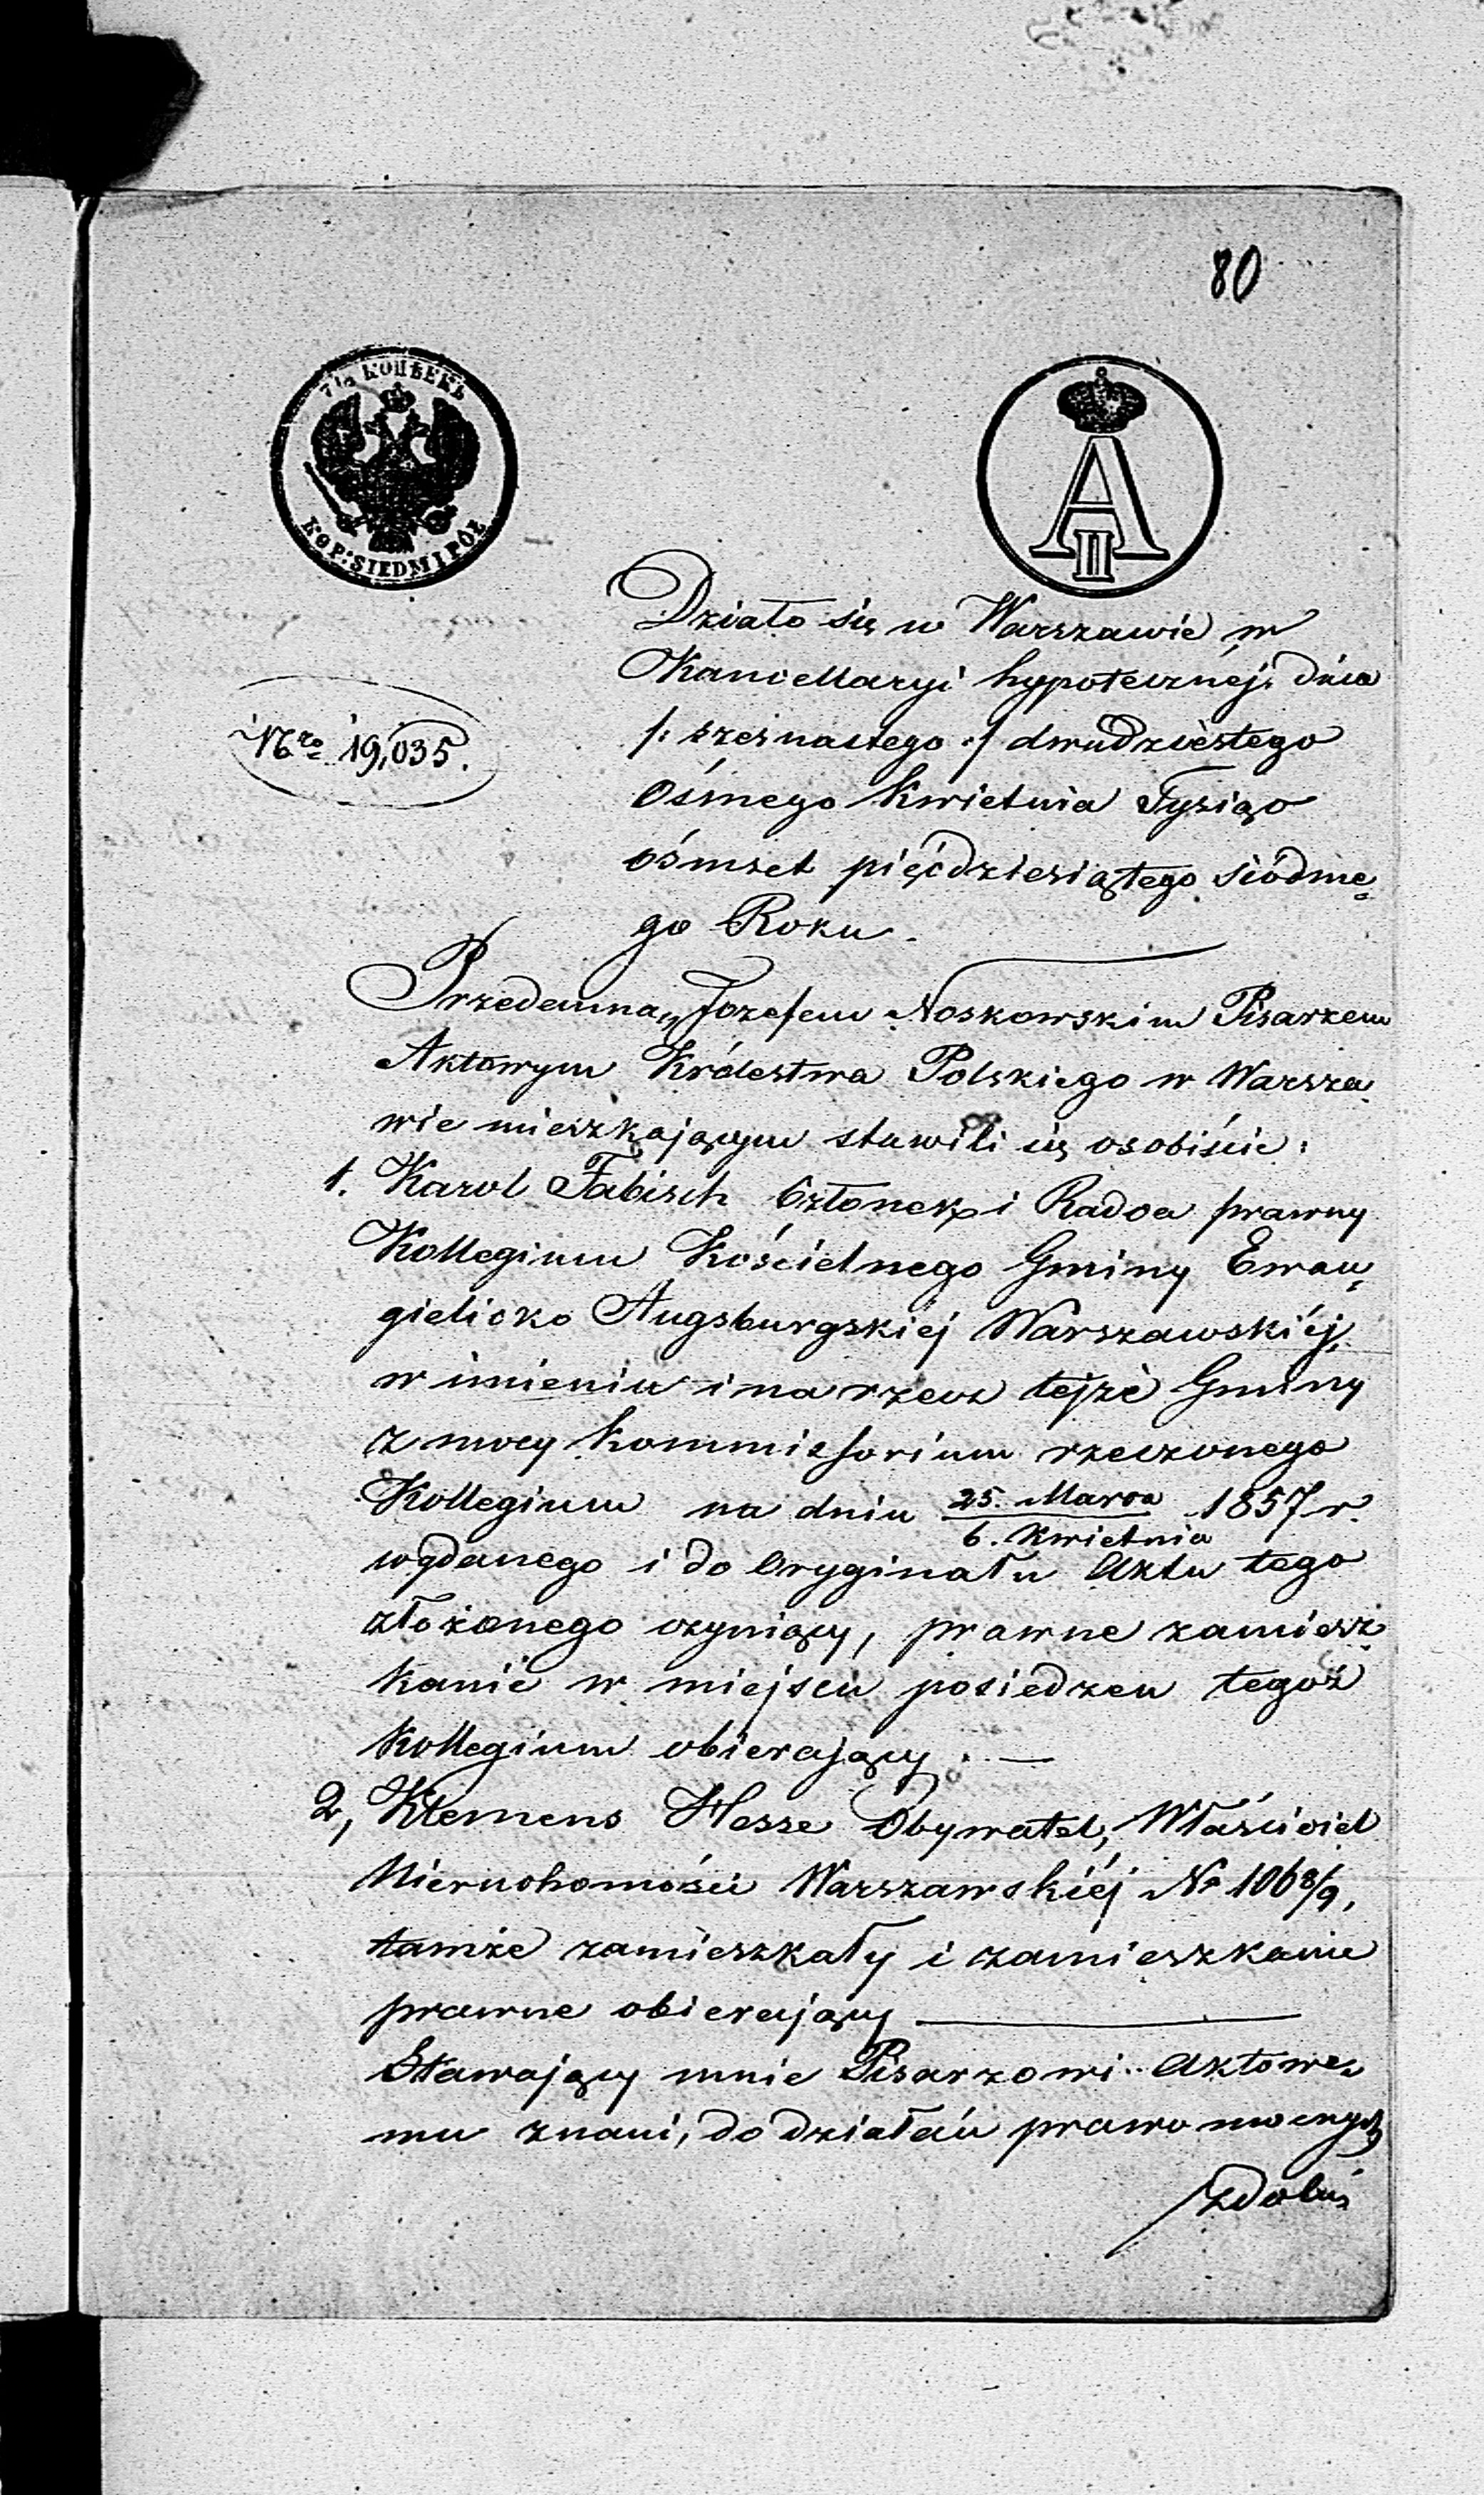 80
7½ КОПѢЕКЪ
KOP: SIEDM I PÓŁ
A II
Działo się w Warszawie w
Kancellaryi hypotecznéj dnia
/: szesnastego :/ dwudziestego
Ósmego Kwietnia Tysiąc
Nro 19,035.
ośmset pięćdziesiątego siódme„
go Roku.
Przedemną Józefem Noskowskim Pisarzem
Aktowym Królestwa Polskiego w Warsza„
wie mieszkającym stawili się osobiście:
1. Karol Fabisch Członek i Radca prawny
Kollegium Kościelnego Gminy Ewan„
gielicko Augsburgskiéj Warszawskiéj,
w imieniu i na rzecz tejże Gminy
z mocy Kommissorium rzeczonego
Kollegium na dniu 25. Marca / 6. Kwietnia 1857 r.
wydanego i do Oryginału Aktu tego
złożonego czyniący, prawne zamiesz„
kanie w miejscu posiedzeń tegoż
Kollegium obierający. —
2, Klemens Hesse Obywatel, Właściciel
Nieruchomości Warszawskiéj No 1068/9,
tamże zamieszkały i zamieszkanie
prawne obierający —
Stawający mnie Pisarzowi Aktowe„
mu znani, do działań prawomocnych
zdolni